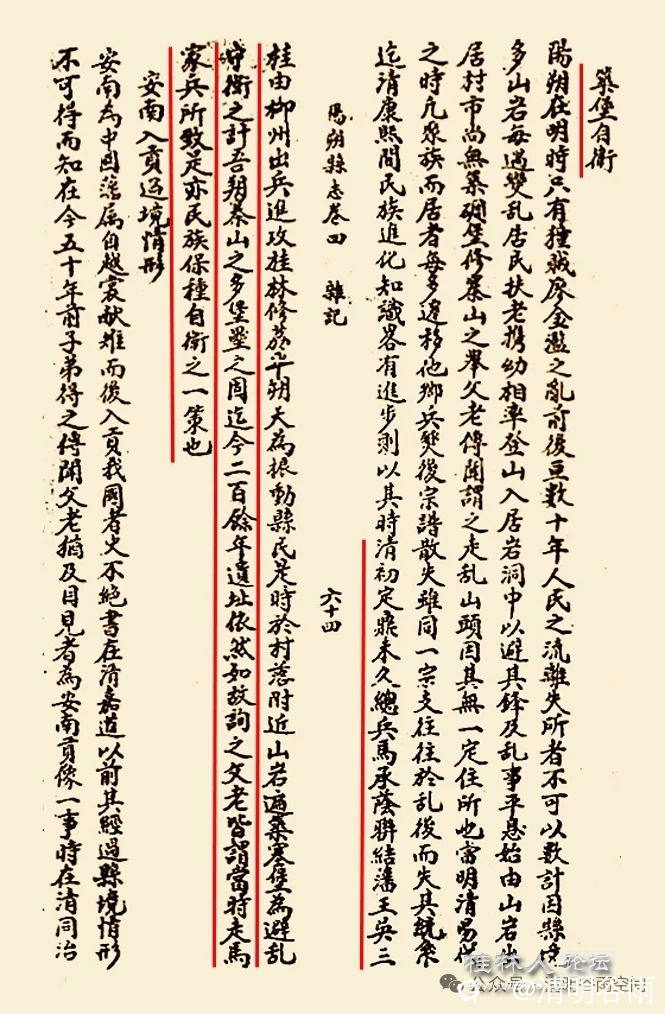 築堡自衛
陽朔在明時只有獞賊廖金濫之亂前後亘數十年人民之流離失所者不可以數計因縣境
多山岩每遇變乱居民扶老携幼相率登山入居岩洞中以避其鋒及乱事平息始由山岩出
居村市尚無築碉堡修寨山之舉父老傳聞謂之走乱山頭因其無一定住所也當明清易代
之時凡聚族而居者每多遷移他鄉兵燹後宗譜散失雖同一宗支往往於乱後而失其統系
迄清康熙間民族進化知識畧有進步剿以其時清初定鼎未久總兵馬承蔭聯結藩王吳三
陽朔縣志卷四 雜記 六十四
桂由柳州出兵進攻桂林修荔平朔大為振動縣民是時於村落附近山岩遍築寨堡為避乱
守衛之計吾朔泰山之多堡壘之固迄今二百餘年遺址依然如故詢之父老皆謂當時走馬
家兵所致是亦民族保種自衛之一策也
安南入貢過境情形
安南為中國藩属自越裳献雉而後入貢我國者史不絕書在清嘉道以前其經過縣境情形
不可得而知在今五十年前子弟得之傳聞父老猶及目見者為安南貢像一事時在清同治
桂林人论坛
公众号
@清明谷雨